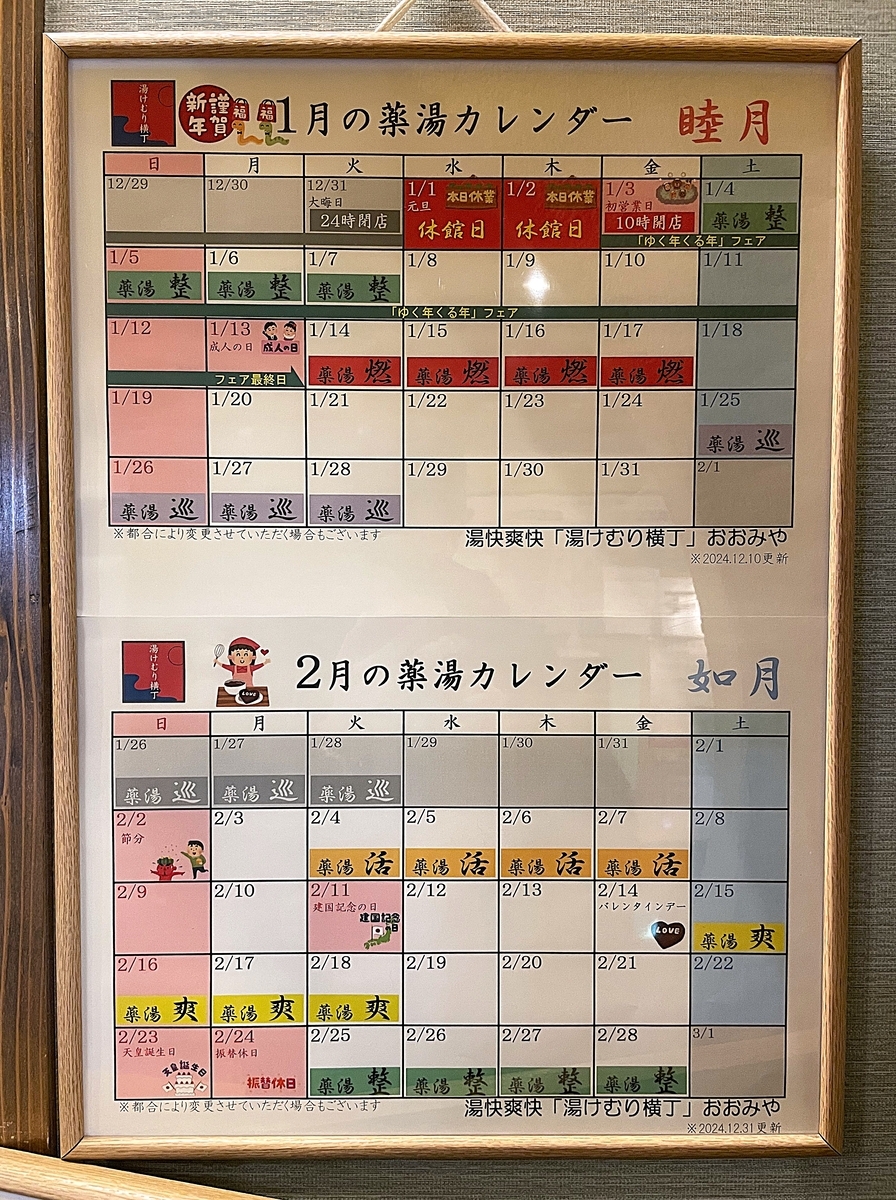 湯けむり横丁 謹賀新年 福 福 1月の薬湯カレンダー 睦月
日 月 火 水 木 金 土
12/29 12/30 12/31 1/1 1/2 1/3 1/4
大晦日 元旦 本日休業 本日休業 初営業日
24時閉店 休館日 休館日 10時開店 薬湯 整
「ゆく年くる年」フェア
1/5 1/6 1/7 1/8 1/9 1/10 1/11
薬湯 整 薬湯 整 薬湯 整
「ゆく年くる年」フェア
1/12 1/13 1/14 1/15 1/16 1/17 1/18
成人の日 成人の日
薬湯 燃 薬湯 燃 薬湯 燃 薬湯 燃
フェア最終日
1/19 1/20 1/21 1/22 1/23 1/24 1/25
薬湯 巡
1/26 1/27 1/28 1/29 1/30 1/31 2/1
薬湯 巡 薬湯 巡 薬湯 巡
※都合により変更させていただく場合もございます 湯快爽快「湯けむり横丁」おおみや
※2024.12.10更新
湯けむり横丁 LOVE 2月の薬湯カレンダー 如月
日 月 火 水 木 金 土
1/26 1/27 1/28 1/29 1/30 1/31 2/1
薬湯 巡 薬湯 巡 薬湯 巡
2/2 2/3 2/4 2/5 2/6 2/7 2/8
節分
薬湯 活 薬湯 活 薬湯 活 薬湯 活
2/9 2/10 2/11 2/12 2/13 2/14 2/15
建国記念の日 バレンタインデー
建国記念の日 LOVE 薬湯 爽
2/16 2/17 2/18 2/19 2/20 2/21 2/22
薬湯 爽 薬湯 爽 薬湯 爽
2/23 2/24 2/25 2/26 2/27 2/28 3/1
天皇誕生日 振替休日
天皇誕生日 振替休日 薬湯 整 薬湯 整 薬湯 整 薬湯 整
※都合により変更させていただく場合もございます 湯快爽快「湯けむり横丁」おおみや
※2024.12.31更新